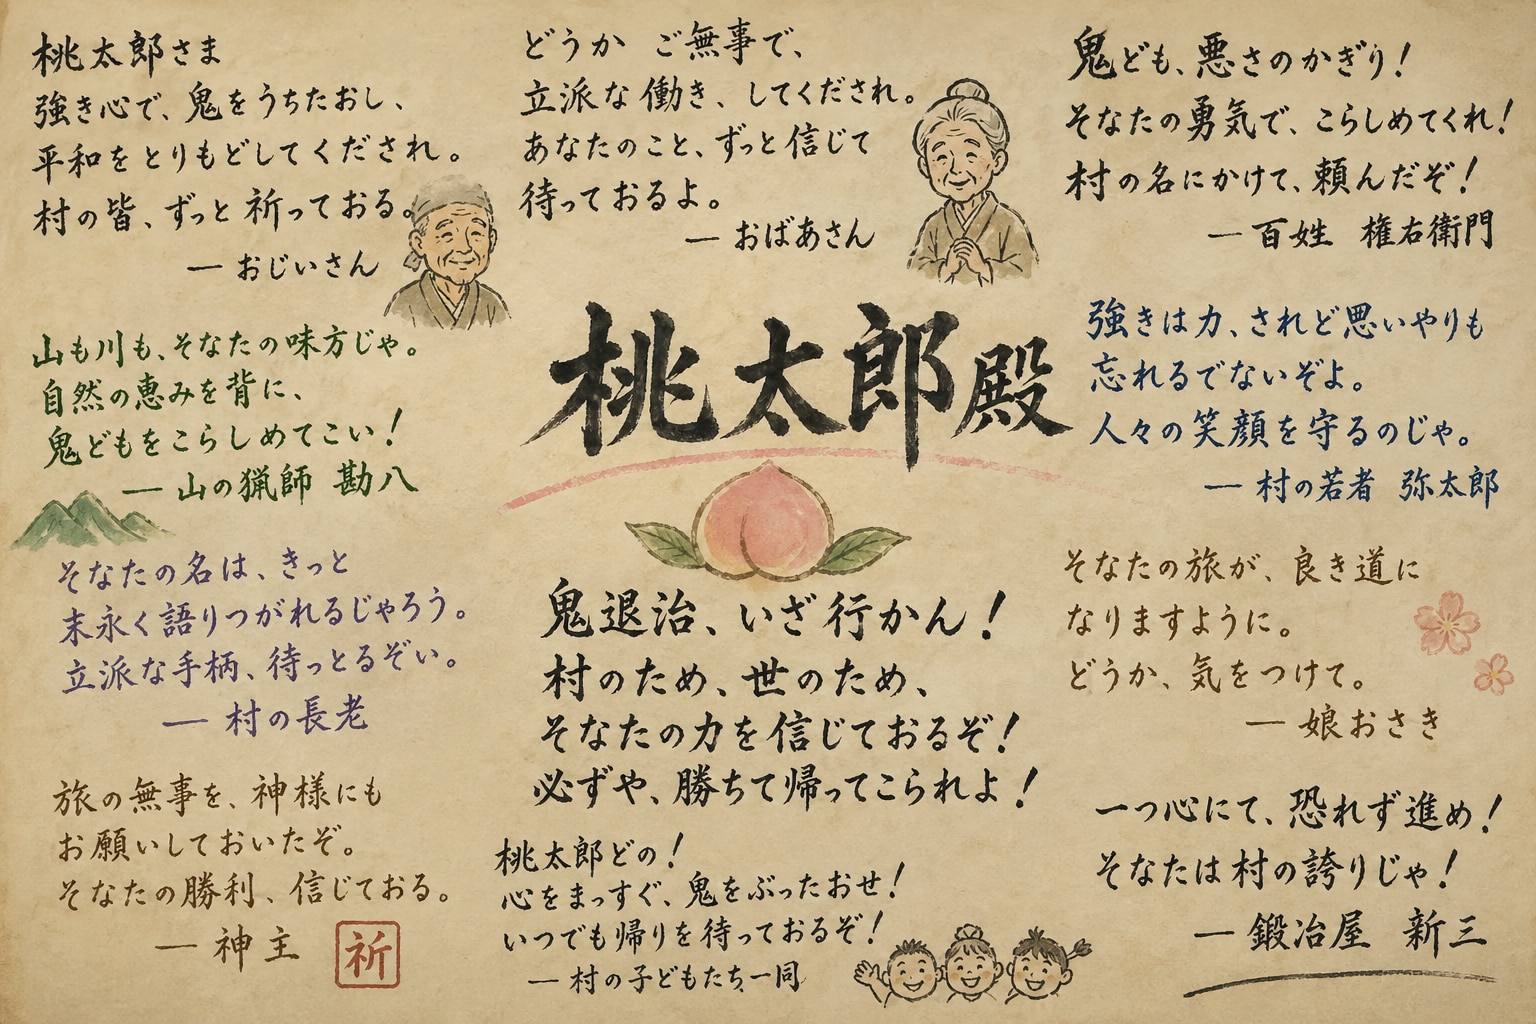 桃太郎さま
強き心で、鬼をうちたおし、
平和をとりもどしてくだされ。
村の皆、ずっと祈っておる。
— おじいさん
どうか ご無事で、
立派な働き、してくだされ。
あなたのこと、ずっと信じて
待っておるよ。
— おばあさん
鬼ども、悪さのかぎり!
そなたの勇気で、こらしめてくれ!
村の名にかけて、頼んだぞ!
— 百姓 権右衛門
山も川も、そなたの味方じゃ。
自然の恵みを背に、
鬼どもをこらしめてこい!
— 山の猟師 勘八
桃太郎殿
強きは力、されど思いやりも
忘れるでないぞよ。
人々の笑顔を守るのじゃ。
— 村の若者 弥太郎
そなたの名は、きっと
末永く語りつがれるじゃろう。
立派な手柄、待っとるぞい。
— 村の長老
鬼退治、いざ行かん!
村のため、世のため、
そなたの力を信じておるぞ!
必ずや、勝ちて帰ってこられよ!
そなたの旅が、良き道に
なりますように。
どうか、気をつけて。
— 娘おさき
旅の無事を、神様にも
お願いしておいたぞ。
そなたの勝利、信じておる。
— 神主
祈
桃太郎どの!
心をまっすぐ、鬼をぶったおせ!
いつでも帰りを待っておるぞ!
— 村の子どもたち一同
一つ心にて、恐れず進め!
そなたは村の誇りじゃ!
— 鍛冶屋 新三